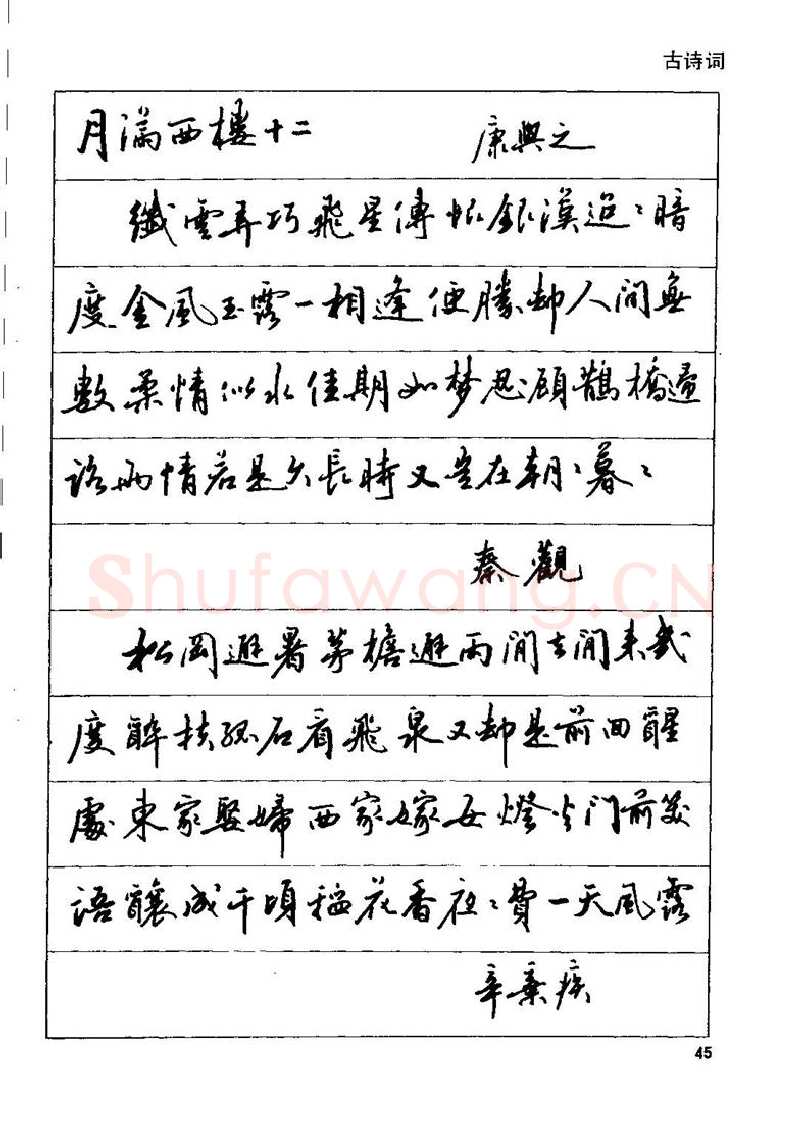 古诗词
月满西樓十二 康與之
纖雲弄巧飛星傳恨銀漢迢〻暗
度金風玉露一相逢便勝却人間無
數柔情似水佳期如梦忍顧鵲橋歸
路兩情若是久長時又豈在朝〻暮〻
秦觀
Shufawang.CN
松岡避暑茅檐避雨閒去閒来幾
度醉扶孤石看飛泉又却是前回醒
處東家娶婦西家嫁女燈火門前笑
語釀成千頃稻花香夜〻費一天風露
辛棄疾
45